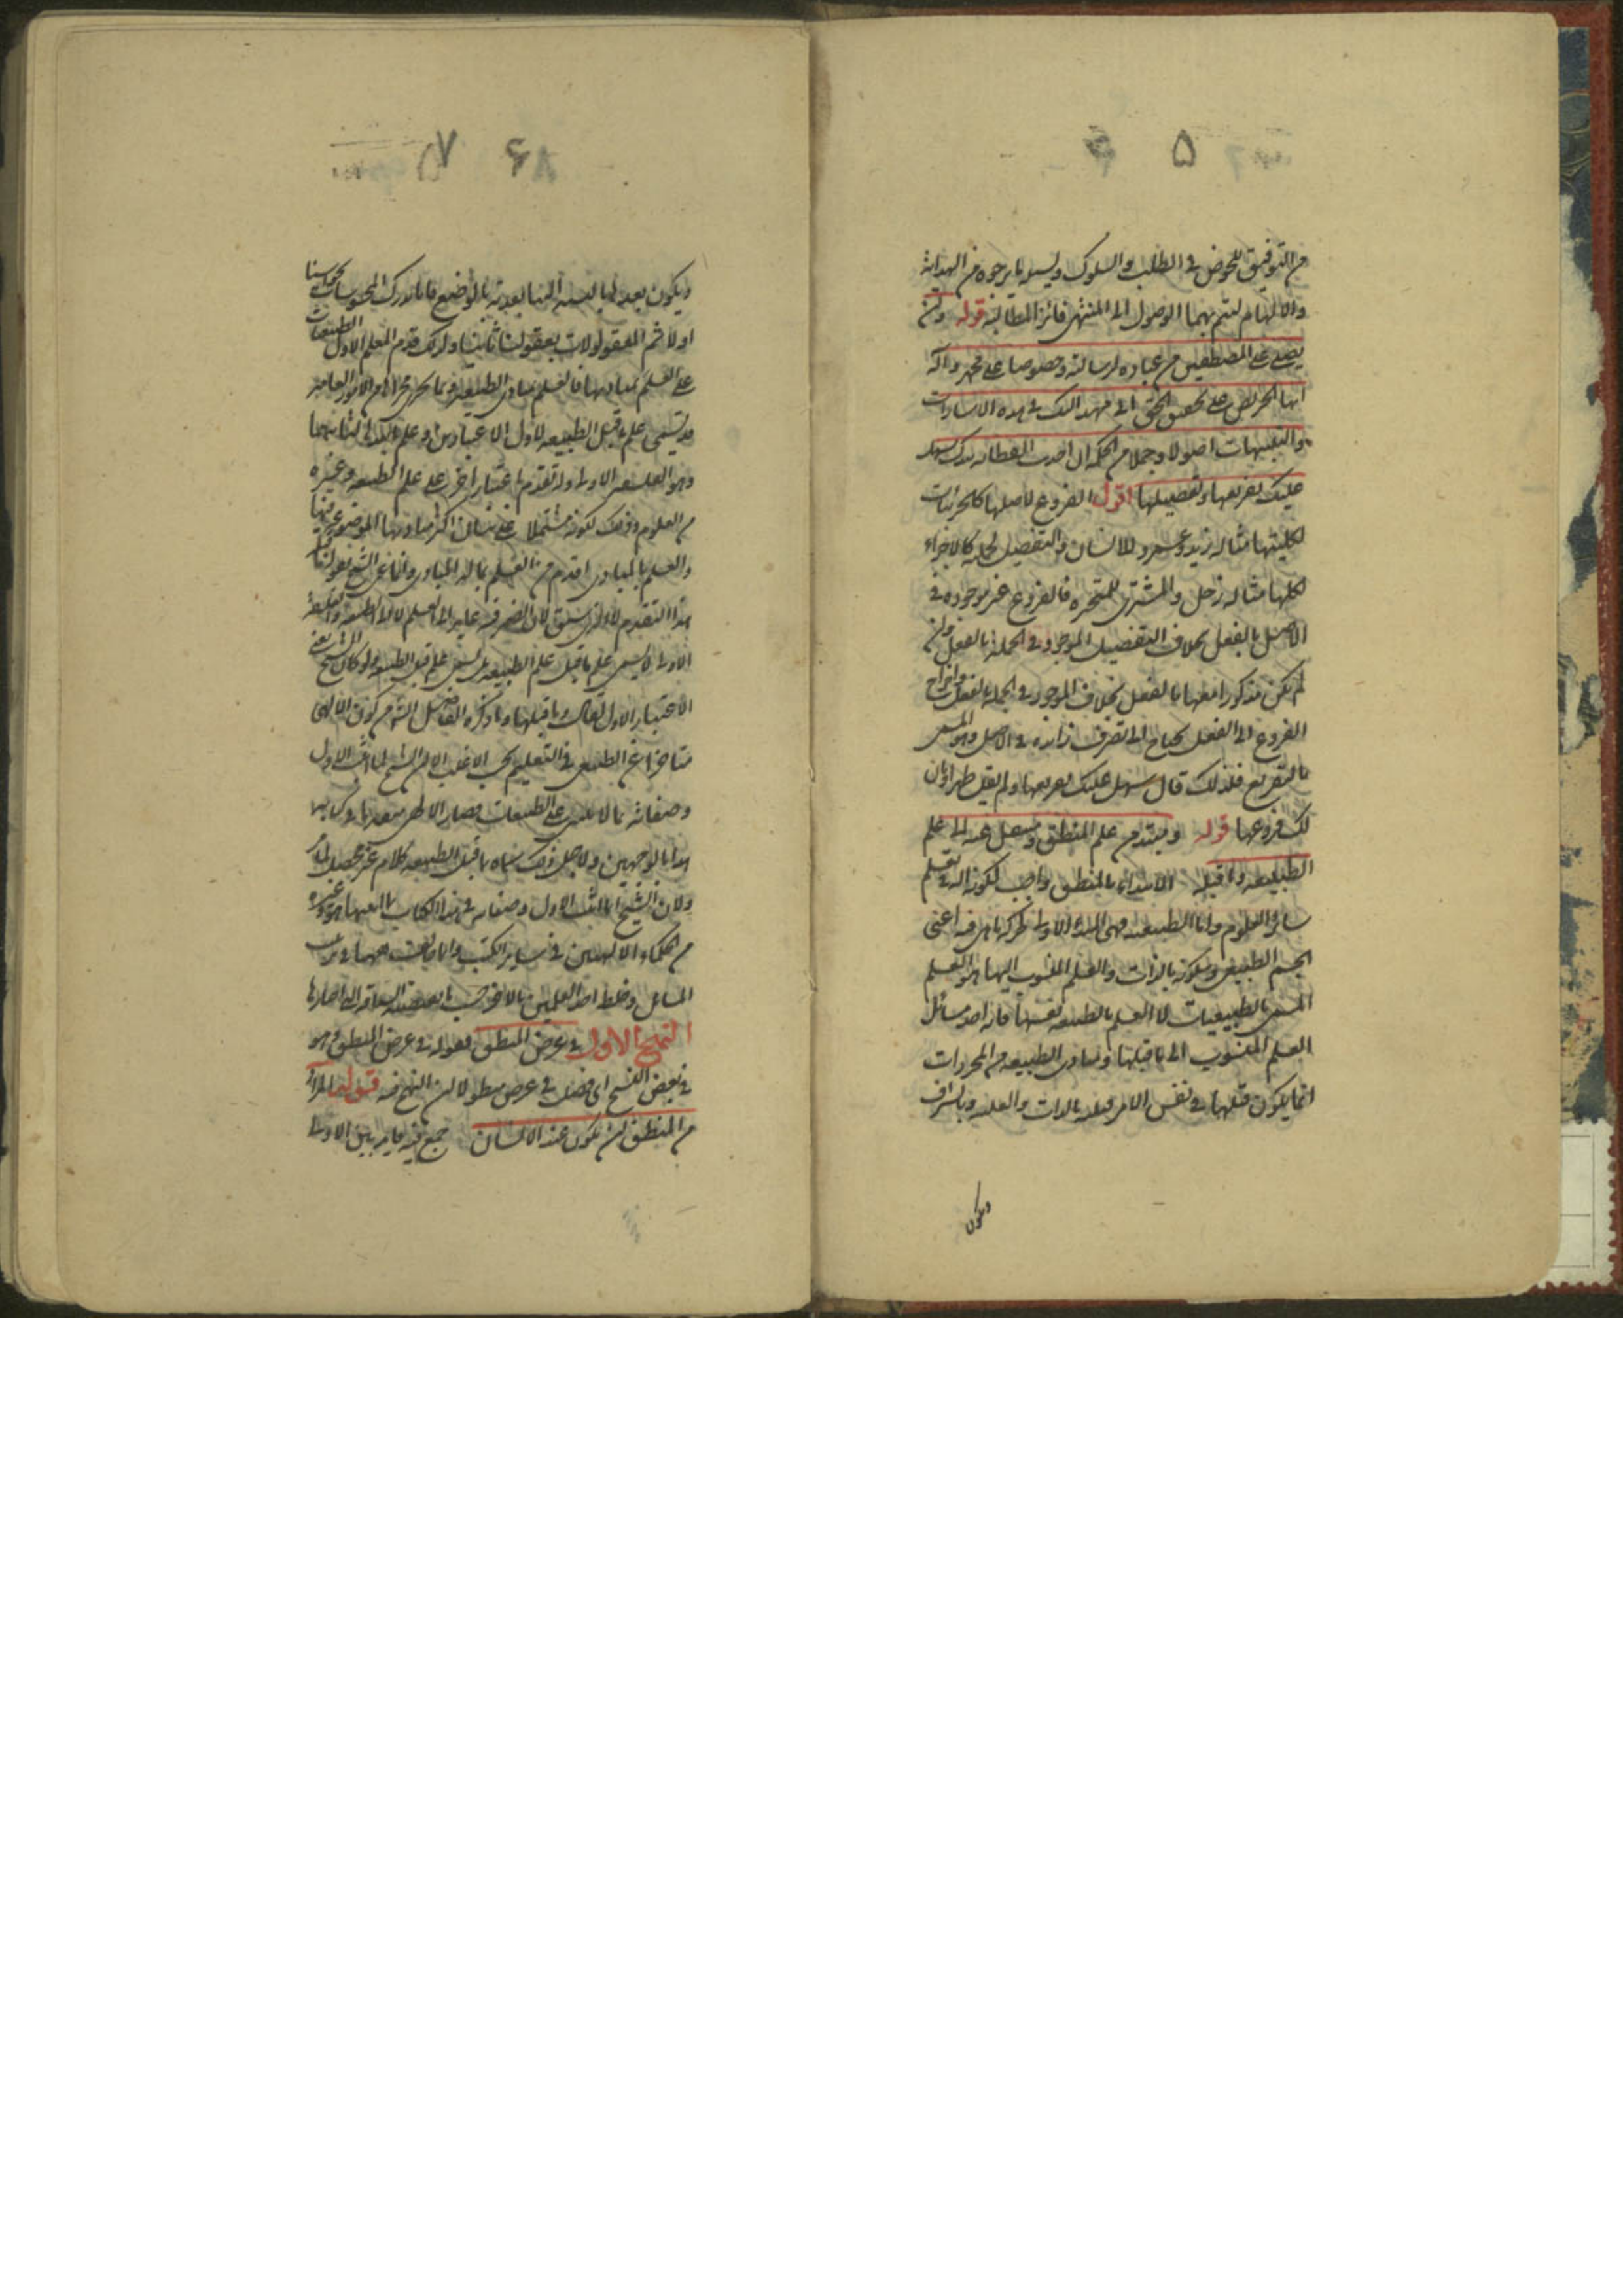 ۵
من التوفيق للخوض فى الطلب والسلوك وليسه ما يرجوه من الهداية
والالهام ليتم بهما الوصول الى المنتهى فائزا لمطالبه قوله وان
يصلى على المصطفين من عباده لرسالته وخصوصا على محمد وآله
ايها الحريص على تحقيق الحق انى مهد اليك فى هذه الاشارات
والتنبيهات اصولا وجملا من الحكمة ان اخذت الفطانه بيدك سهل
عليك تفريعها وتفصيلها اقول الفروع لاصلها كالجزئيات
لكليتها مثاله زيد وعمرو للانسان والتفصيل لجمله كالاجزاء
لكلها مثاله زحل والمشترى للمتحيره فالفروع غير موجوده فى
الاصل بالفعل بخلاف التفصيل الموجود فى الجملة بالفعل وان
لم تكن مذكورا معها بالفعل بخلاف الموجود فى الجمله بالفعل واخراج
الفروع الى الفعل يحتاج الى تصرف زائد فى الاصل وهو المسمى
بالتفريع فلذلك قال سهل عليك تفريعها ولم يقل ظهر او بان
لك فروعها قوله ومبتدء من علم المنطق ومنتقل عنه الى علم
الطبيعه وما قبله الابتداء بالمنطق واجب لكونه اله فى تعلم
سائر العلوم واما الطبيعه فهى المبدء الاول لحركة ما هى فيه اعنى
الجسم الطبيعى وسكونه بالذات والعلم المنسوب اليها هو العلم
المسمى بالطبيعيات لا العلم بالطبيعه نفسها فانه احد مسائل
العلم المنسوب الى ما قبلها ومبادى الطبيعه من المجردات
انما يكون قبلها فى نفس الامر قبليه بالذات والعليه وبالشرف
ويكون
۶ ۷
ويكون بعدها بالنسبه الينا بعدية بالوضع فانا ندرك المحسوسات بحواسنا
اولا ثم المعقولات بعقولنا ثانيا ولذلك قدم المعلم الاول الطبيعيات
على العلم بمباديها فالعلم بمبادى الطبيعه وما يجرى مجراها من الامور العامه
قد يسمى علم ما قبل الطبيعه لاول الاعتبارين وعلم ما بعدها لثانيهما
وهو الفلسفه الاولى وله تقدم باعتبار اخر على علم الطبيعه وغيره
من العلوم وذلك لكونه مشتملا على بيان اكثر مباديها الموضوعه فيها
والعلم بالمبادى اقدم من العلم بما له المبادى وانما عنى الشيخ بقوله وما قبله
هذا التقدم لا الذى سبق لان الضمير فيه عايد الى العلم لا الى الطبيعه والفلسفه
الاولى لا يسمى علم ما قبل علم الطبيعه بل يسمى علم ما قبل الطبيعه ولو كان الشيخ يعنى
الاعتبار الاول لقال وما قبلها وما ذكره الفاضل الشارح من كون الالهى
متاخرا عن الطبيعى فى التعليم بحسب الاغلب الا ان الشيخ لما اثبت الاول
وصفاته بما لا يبتنى على الطبيعيات فصار الالهى متقدما فى كتابه
هذا بالوجهين ولاجل ذلك سماه ما قبل الطبيعه كلام غير محصل لما مر
ولان الشيخ انما اثبت الاول وصفاته فى هذا الكتاب بما اثبتهما هو وغيره
من الحكماء الالهيين فى سائر الكتب وانما يخالف ههنا فى ترتيب
المسائل وخلط احد العلمين بالاخر بحسب ما تقتضيه السياقه التى اختارها
النهج الاول فى غرض المنطق فقوله فى غرض المنطق وهو
فى بعض النسخ اى فصل فى غرض المنطق لان النهج فيه قوله المراد
من المنطق ان يكون عند الانسان جمع فيه فايدتين الاولى